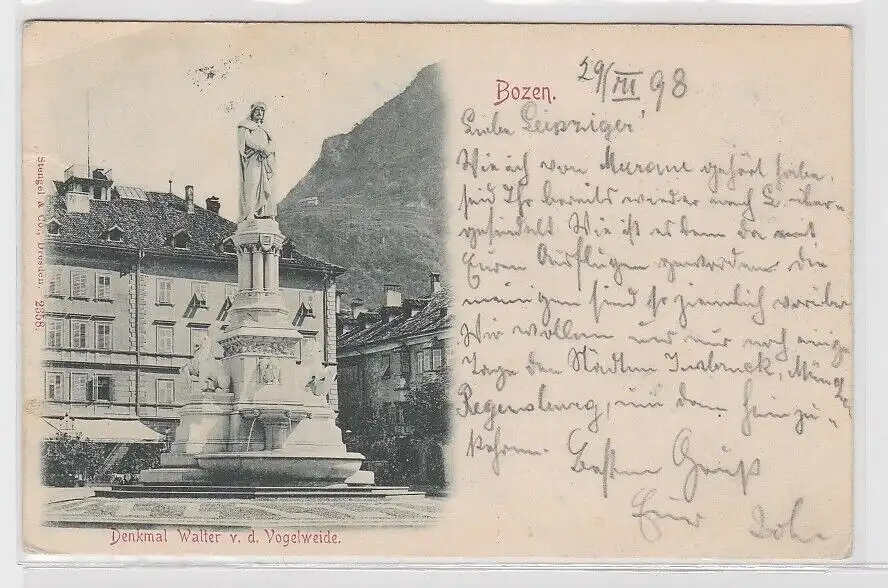 Stengel & Co., Dresden. 2358.
Bozen.
29/VII 98
Liebe Leipziger!
Wie ich von Mama gehört habe,
seid Ihr bereits wieder nach L. über-
gesiedelt Wie ist es denn da mit
Euren Ausflügen geworden die
meinigen sind so ziemlich vorüber
Wir wollen uns nur noch einige
Tage den Städten Insbruck, München
Regensburg, um dann heimzu-
kehren. Besten Gruß
Euer
Denkmal Walter v. d. Vogelweide.